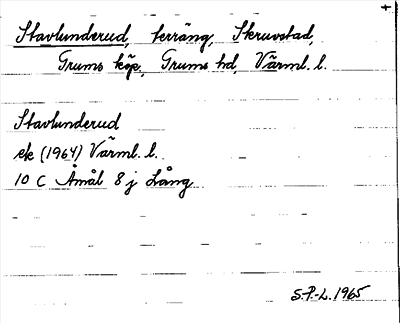 +
Stavlunderud, terräng, Skruvstad,
Grums köp, Grums hd, Värml. l.
Stavlunderud
ek (1964) Värml. l.
10 C Åmål 8 j Lång
S.P.-L. 1965